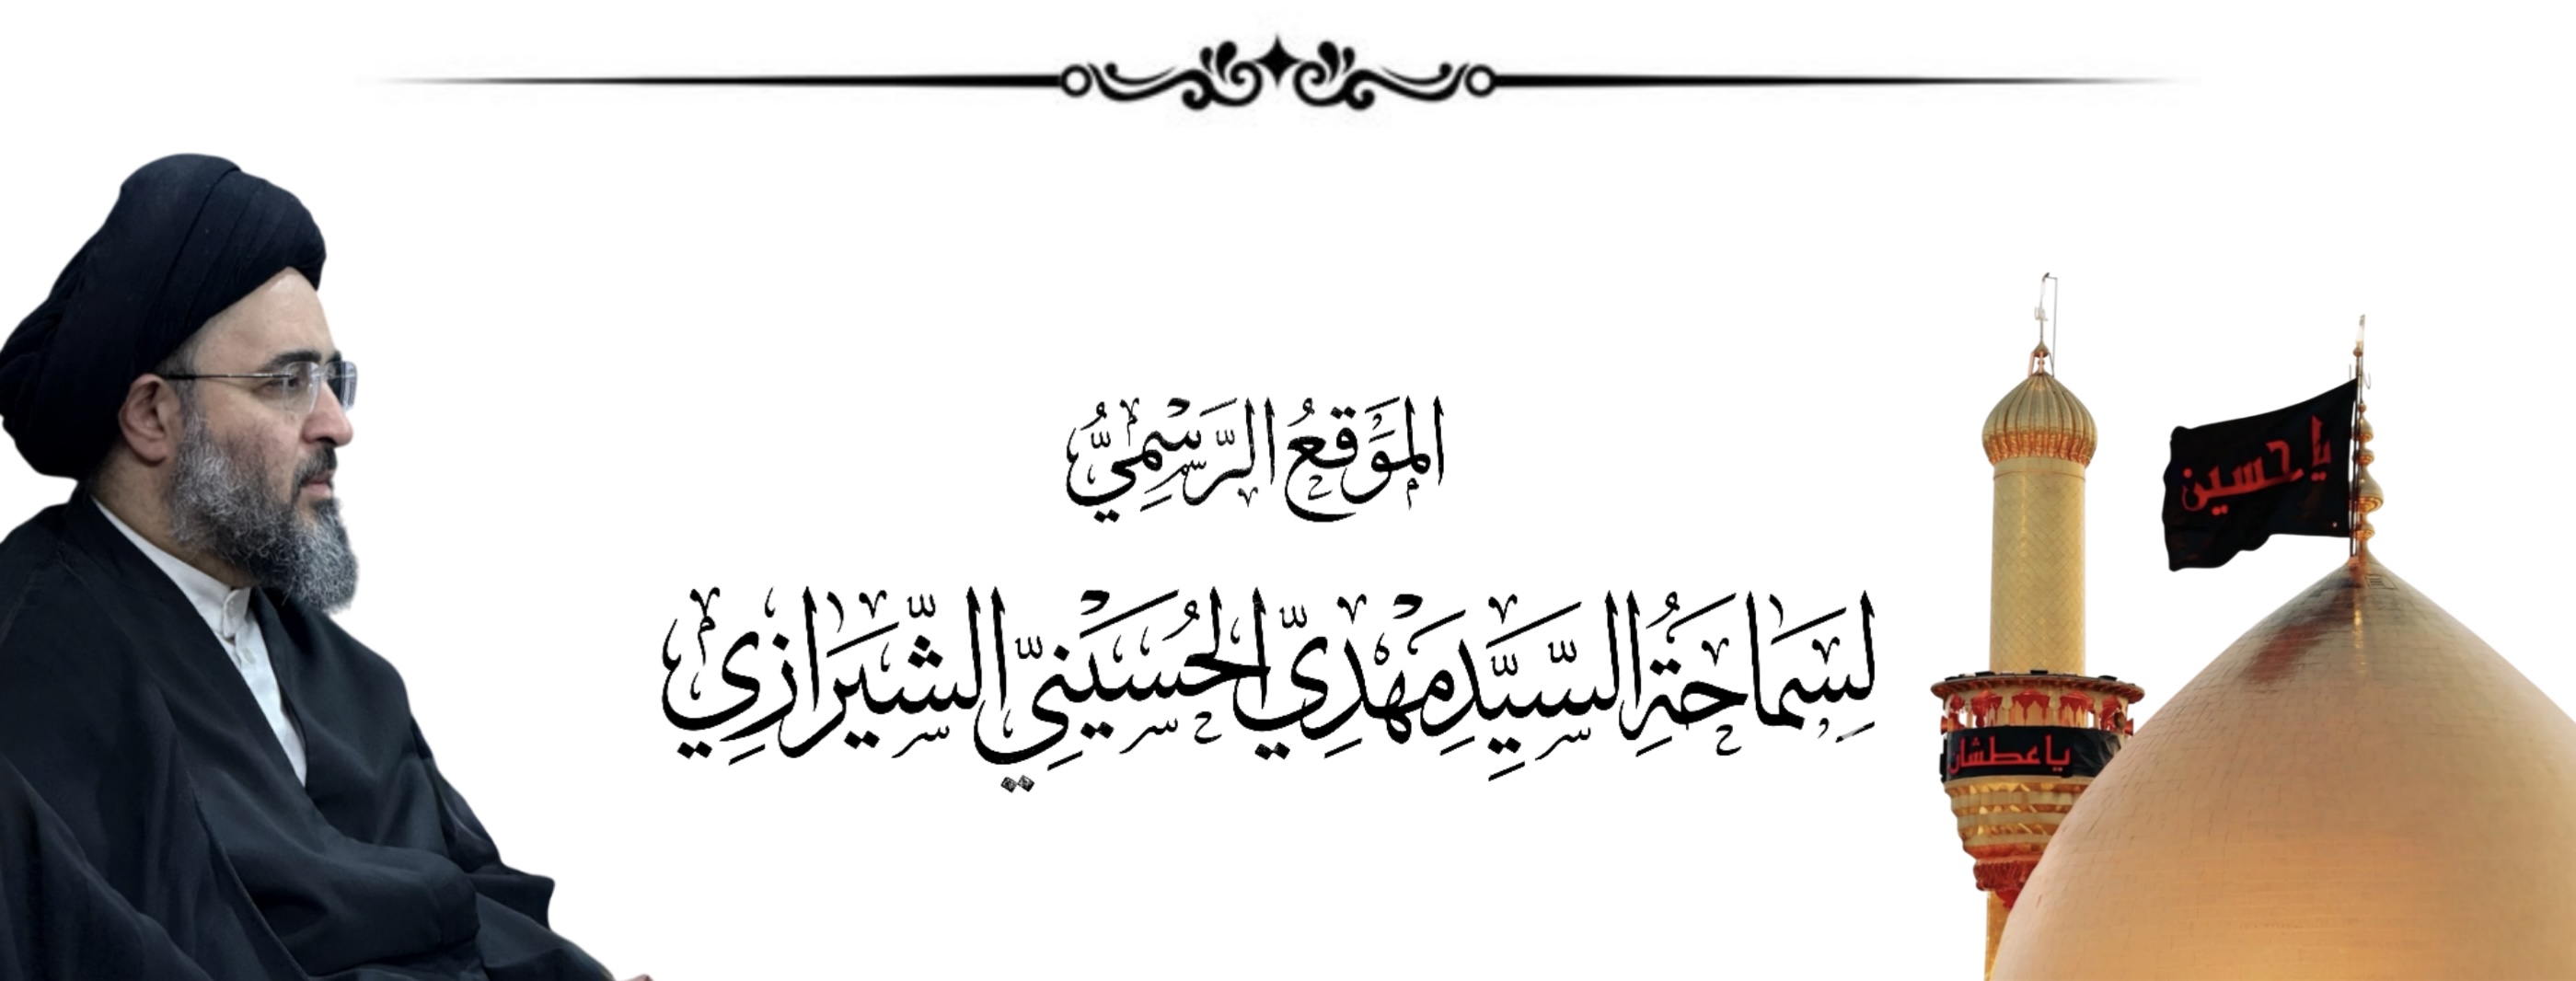 المَوْقِعُ الرَّسْمِيُّ
لِسَمَاحَةِ السَّيِّدِ مَهْدِيّ الحُسَيْنِيّ الشِّيرَازِي
يا حسين
يا عطشان